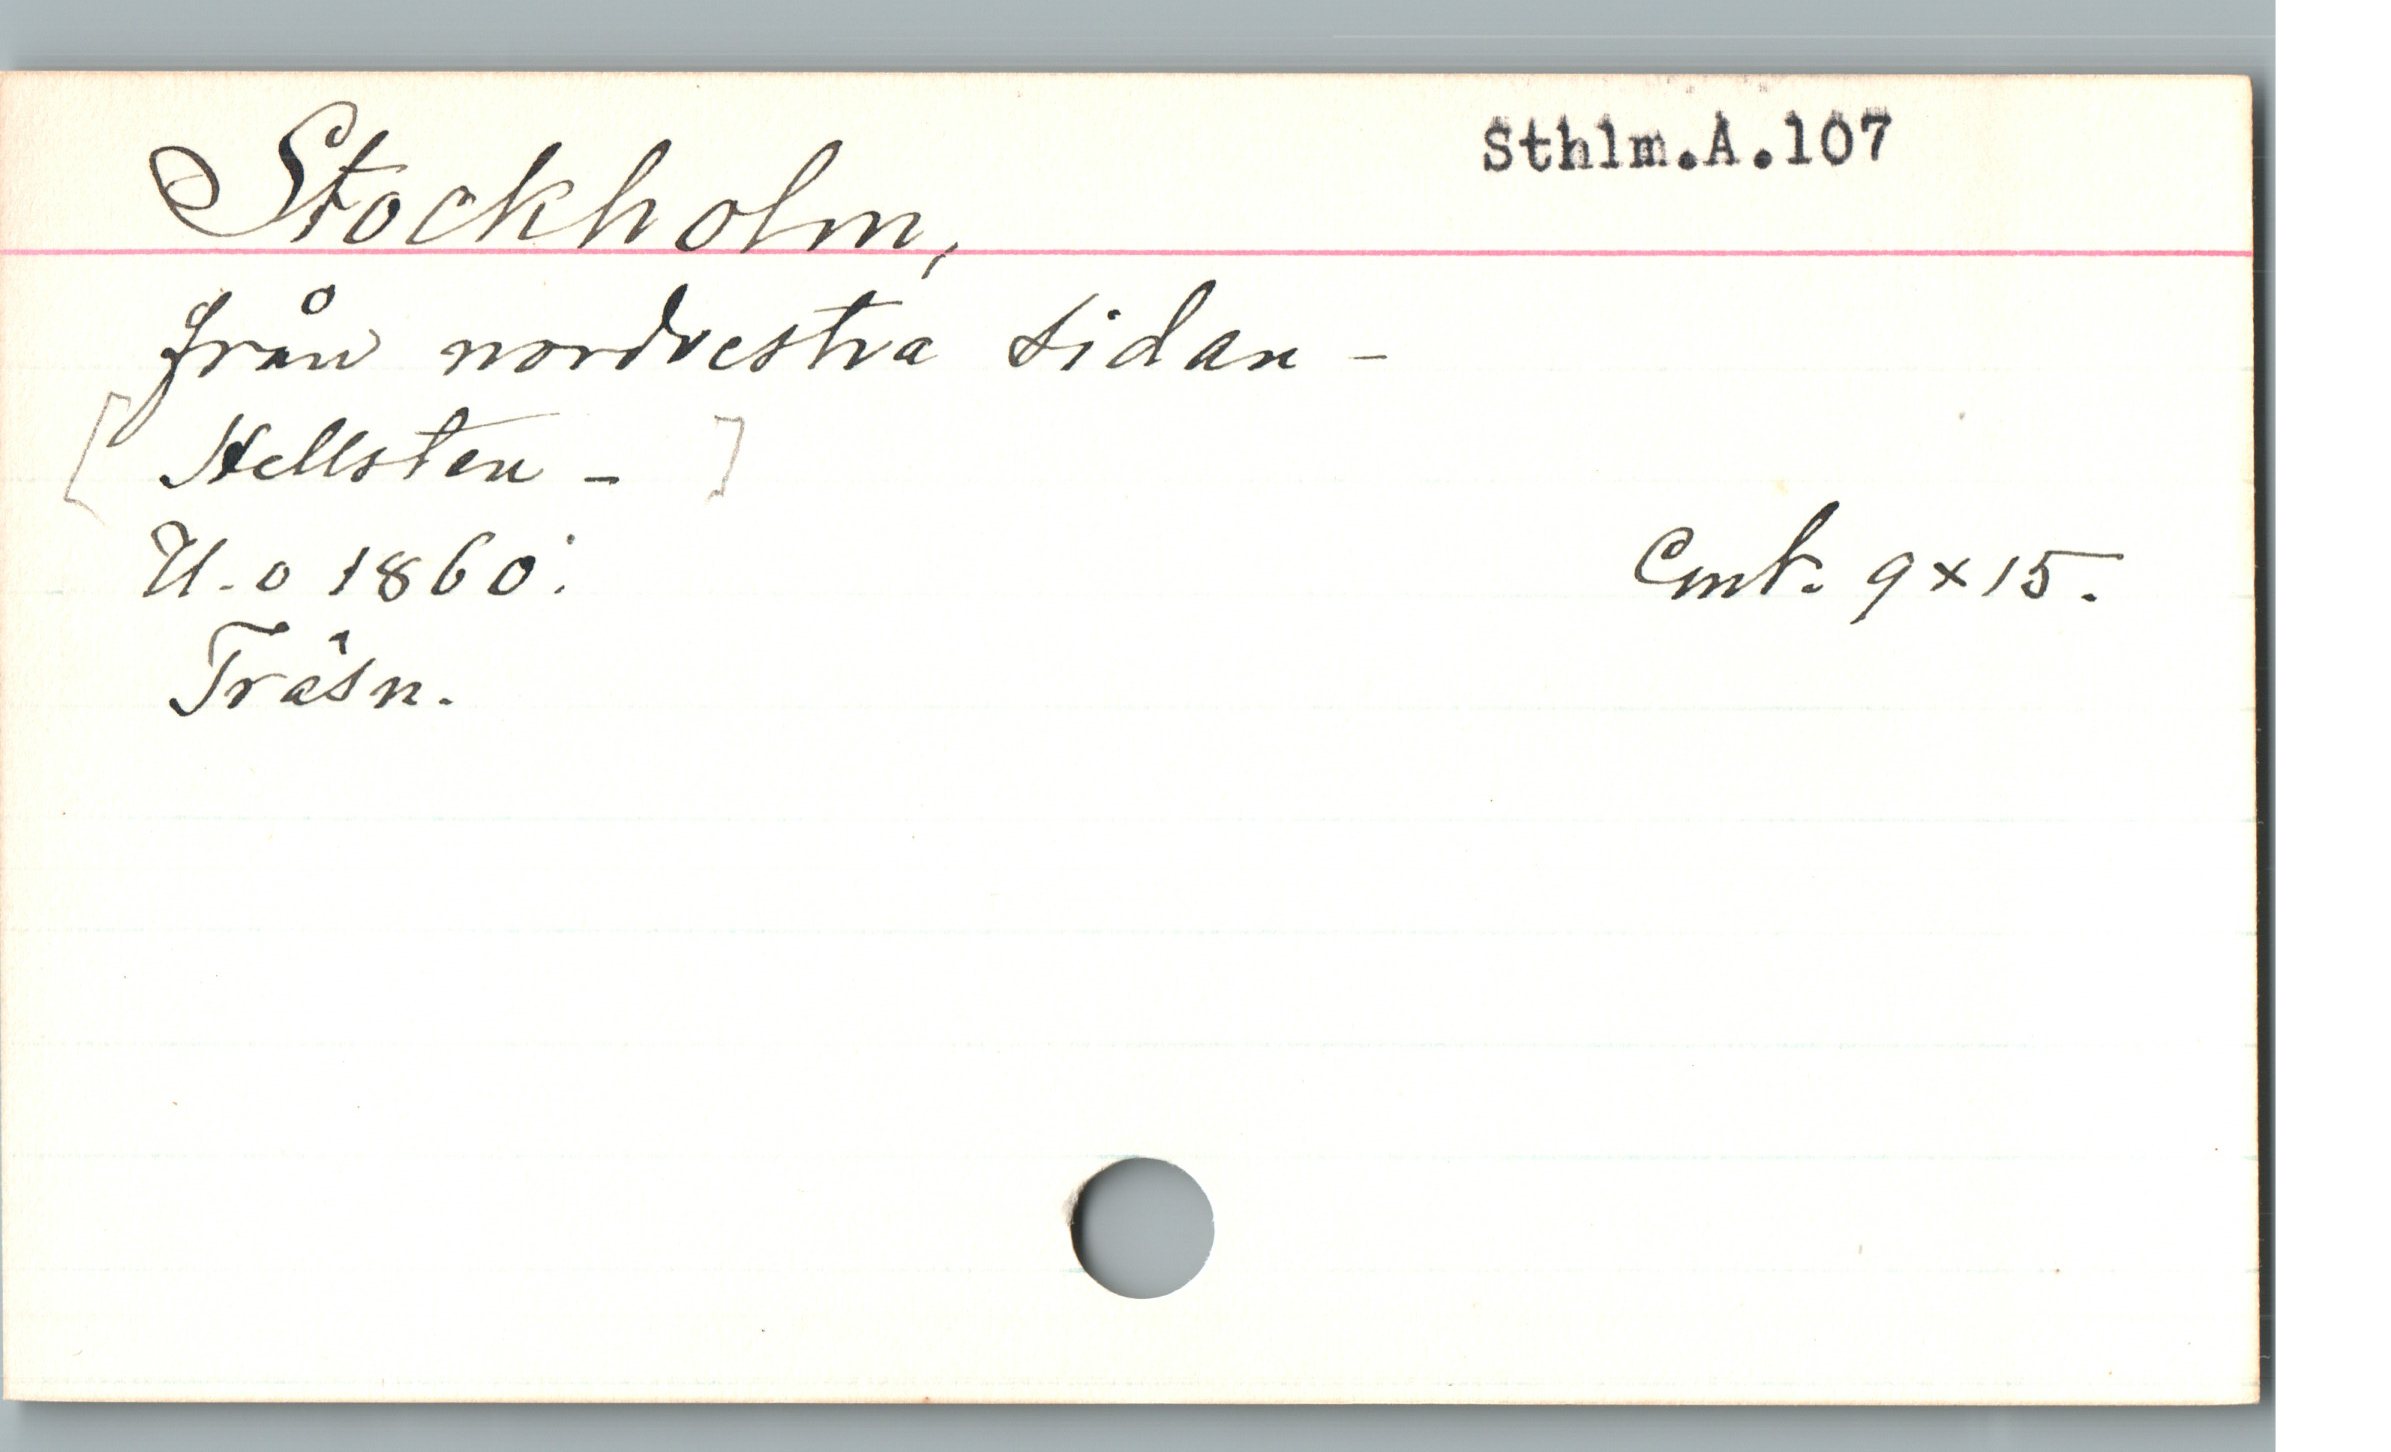 Sthlm.A.107
Stockholm,
från nordvestra sidan -
[ Hellsten - ]
U. o 1860:
Cmt. 9 x 15.
Träsn.